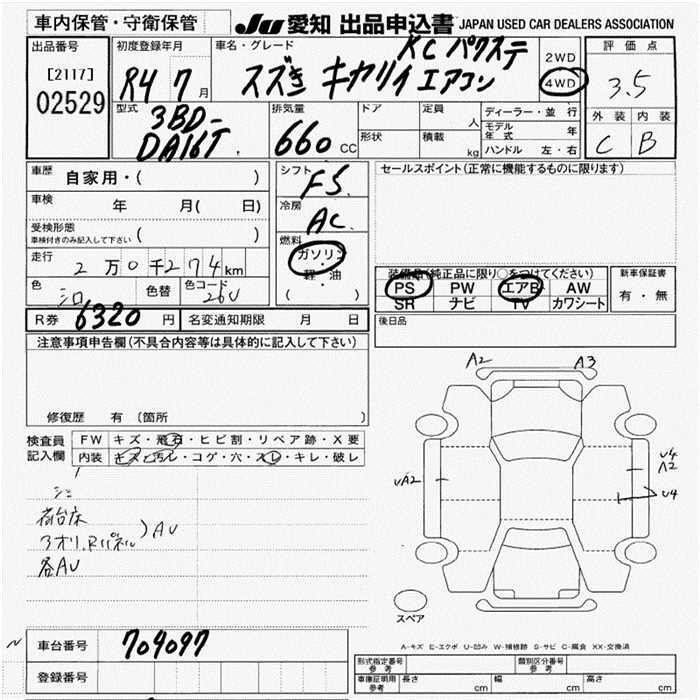 車内保管・守衛保管
JU 愛知 出品申込書 JAPAN USED CAR DEALERS ASSOCIATION
出品番号
[2117]
02529
初度登録年月
R4 7月
車名・グレード
KC パワステ
スズキ キャリイ エアコン
2WD
4WD
評価点
3.5
外装 内装
C B
型式
3BD-
DA16T
排気量
660 CC
ドア
形状
定員 人
積載 kg
ディーラー・並行
モデル年式 年
ハンドル 左・右
車歴 自家用・( )
車検 年 月( 日)
受検形態
車検付きのみ記入して下さい ( )
走行 2万0千274km
色 シロ 色替 色コード 26U
シフト F5
冷房 AC
燃料
ガソリン
・
軽・油
( )
R券 6320 円 名変通知期限 月 日
セールスポイント(正常に機能するものに限ります)
装備品(純正品に限り○をつけてください)
PS PW エアB AW
SR ナビ TV カワシート
新車保証書
有・無
後日品
注意事項申告欄(不具合内容等は具体的に記入して下さい)
修復歴 有 〔箇所 〕
検査員記入欄
FW キズ・飛石・ヒビ割・リペア跡・X要
内装 キズ・汚レ・コゲ・穴・スレ・キレ・破レ
荷台床
アオリ、Rパネル ) AU
各AU
A2 A3
UA2
U4
A2
U4
スペア
A-キズ E-エクボ U-凹み W-補修跡 S-サビ C-腐食 XX-交換済
車台番号 704097
登録番号
型式指定番号 参考
類別区分番号 参考
車庫証明用 参考 長さ cm 幅 cm 高さ cm